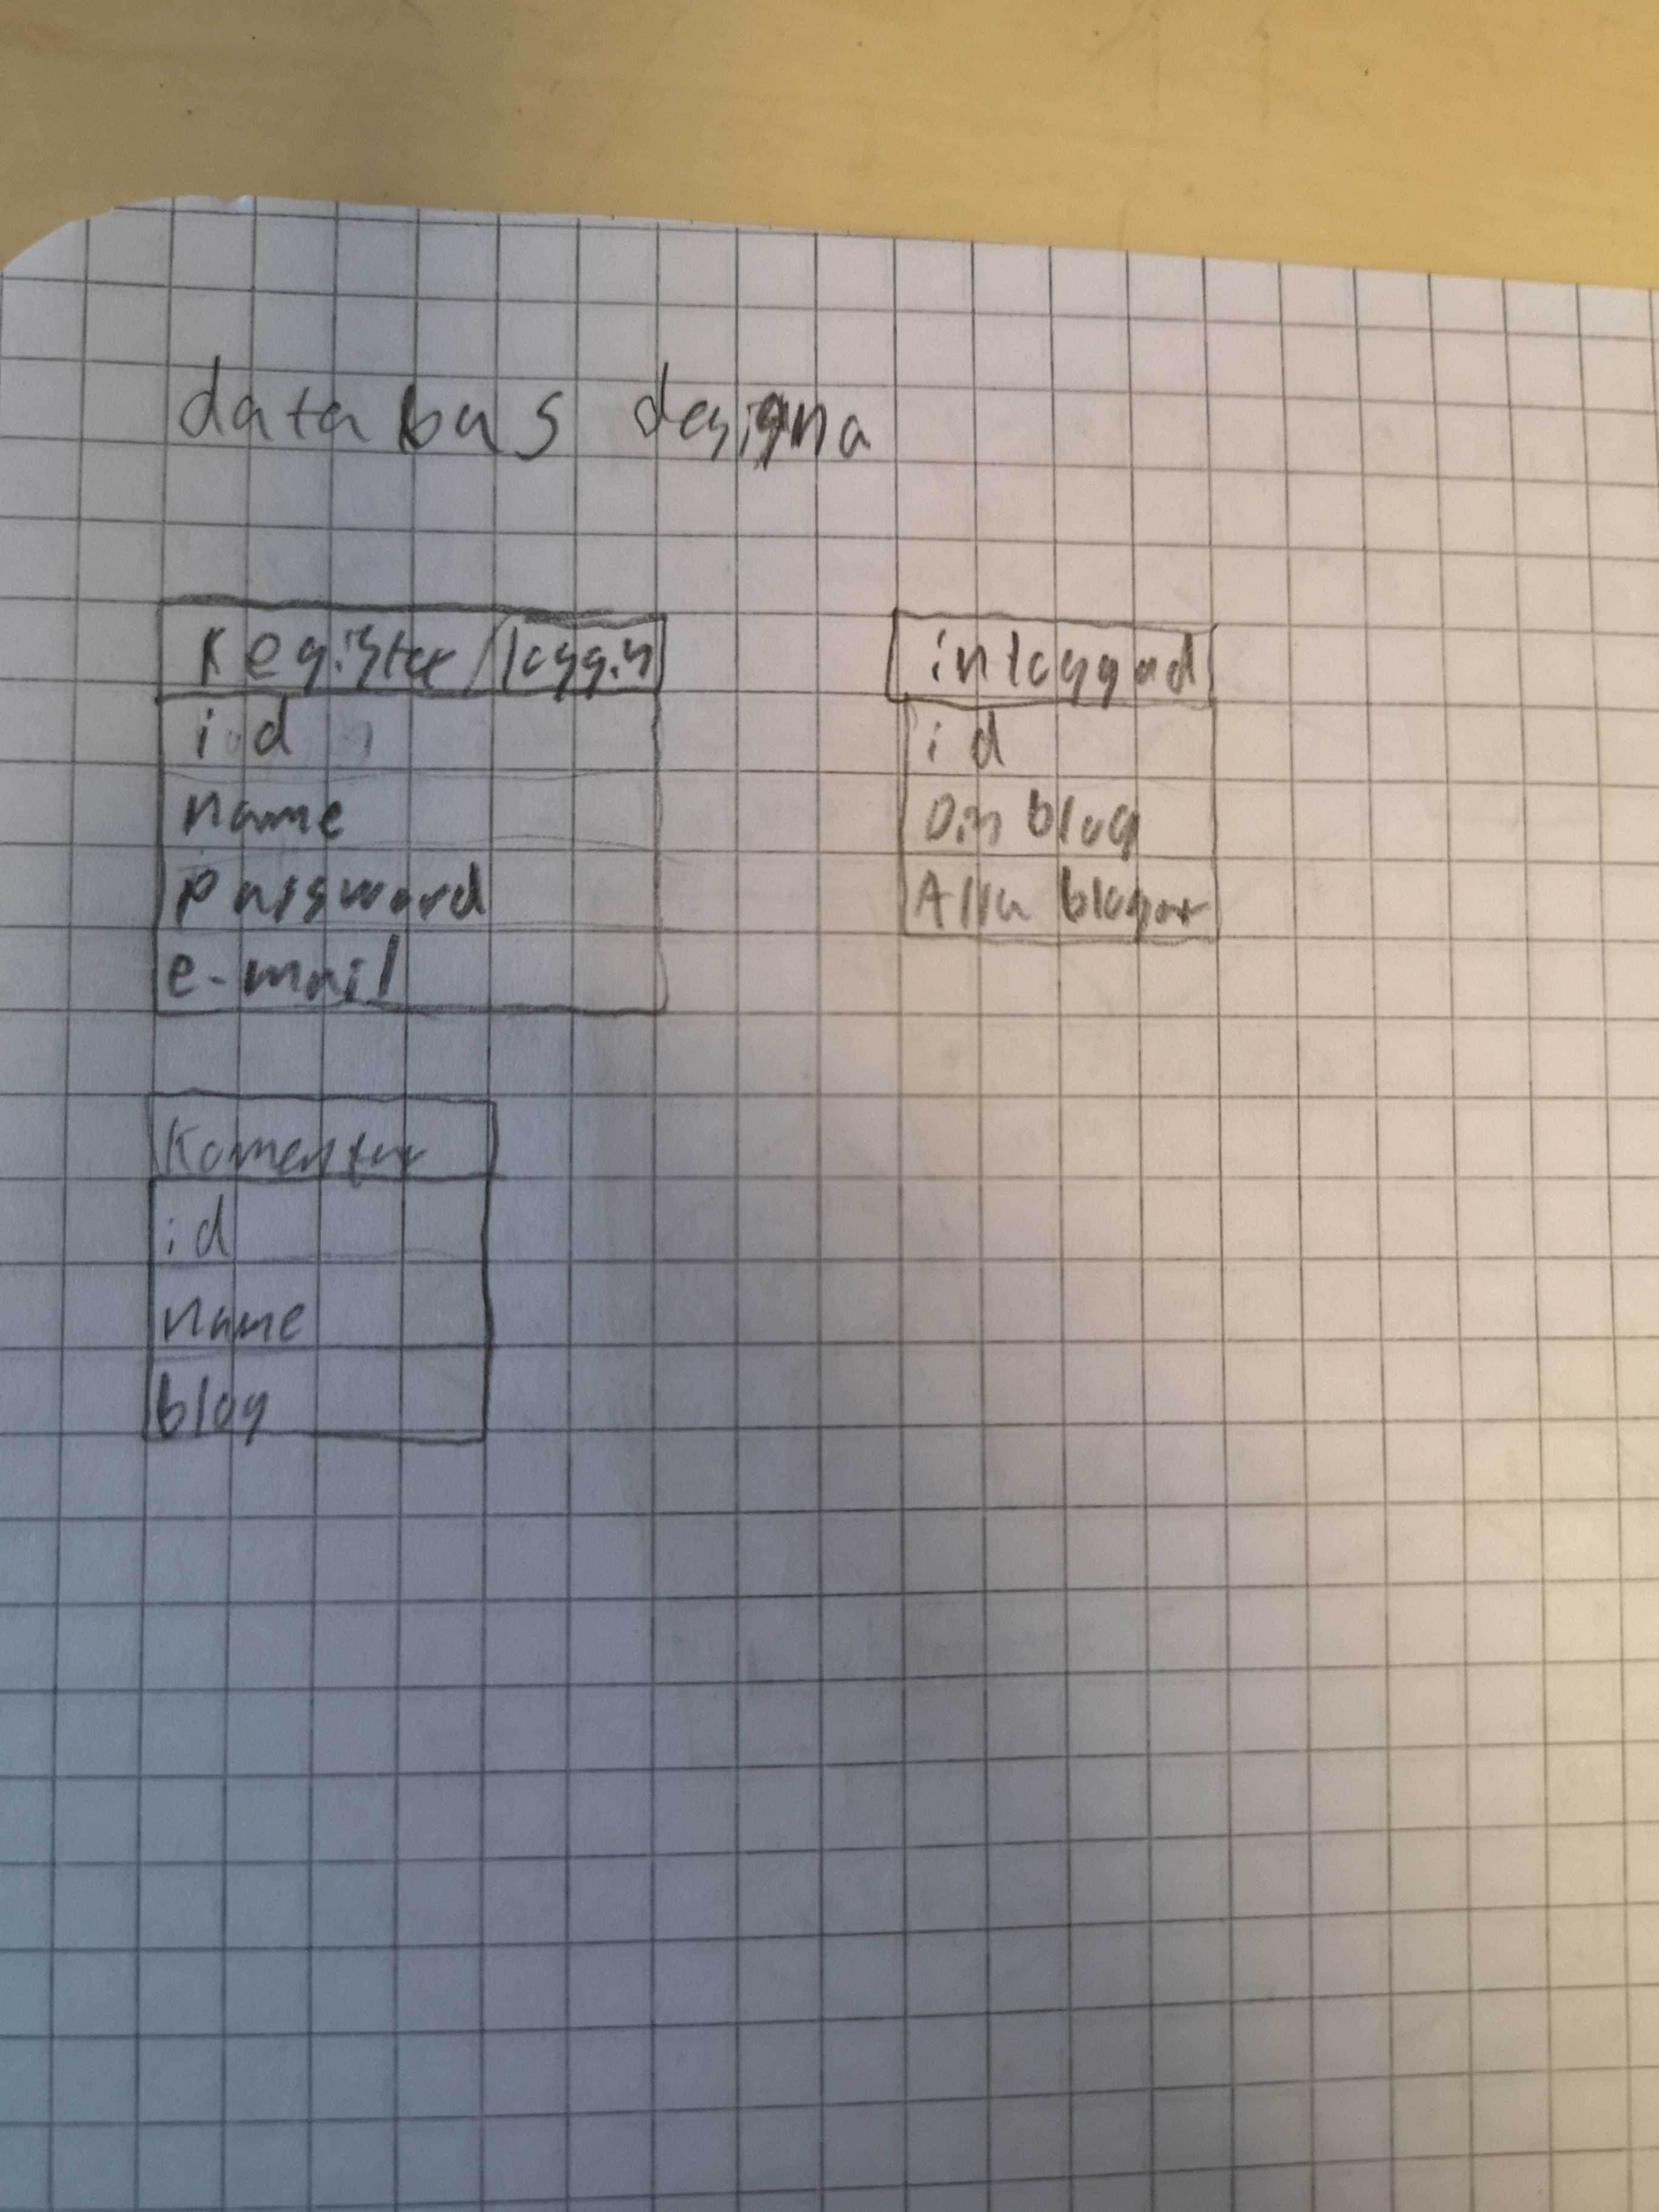 databas designa
Register/loggin
id
name
password
e-mail
inloggad
id
Din blog
Alla blogar
Komentar
id
name
blog